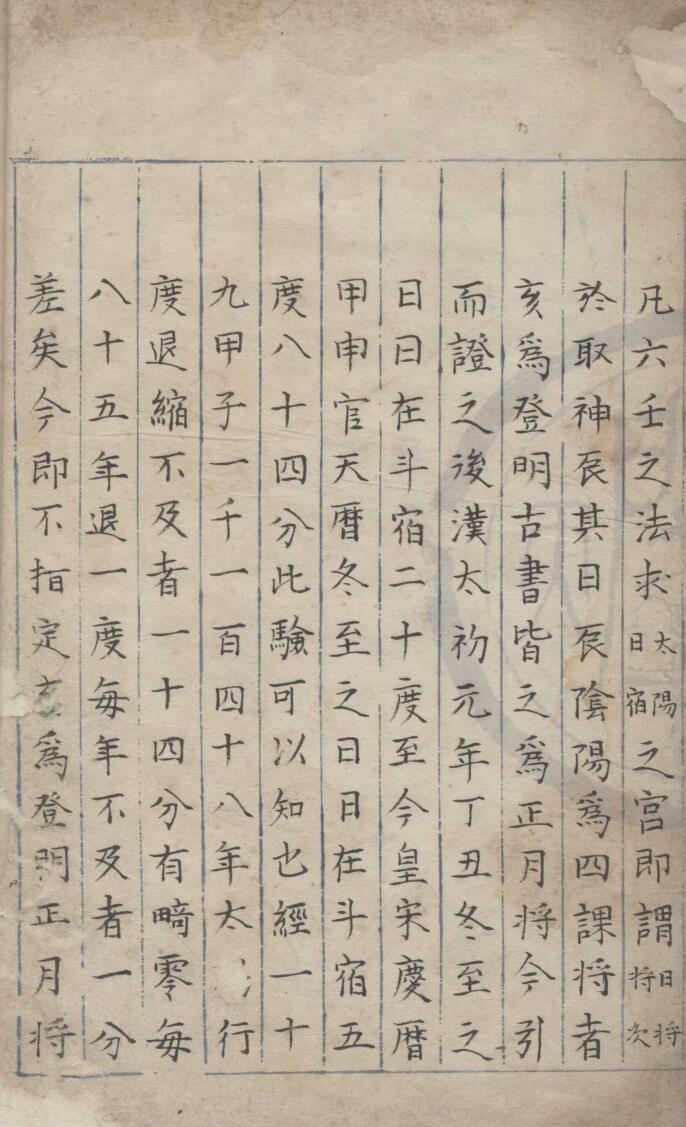 凡六壬之法求太陽日宿之宮即謂日將將次
於取神辰其日辰陰陽為四課將者
亥為登明古書皆之為正月將今引
而證之後漢太初元年丁丑冬至之
日日在斗宿二十度至今皇宋慶曆
甲申官天曆冬至之日日在斗宿五
度八十四分此驗可以知也經一十
九甲子一千一百四十八年太行
度退縮不及者一十四分有畸零每
八十五年退一度每年不及者一分
差矣今即不指定為登明正月將